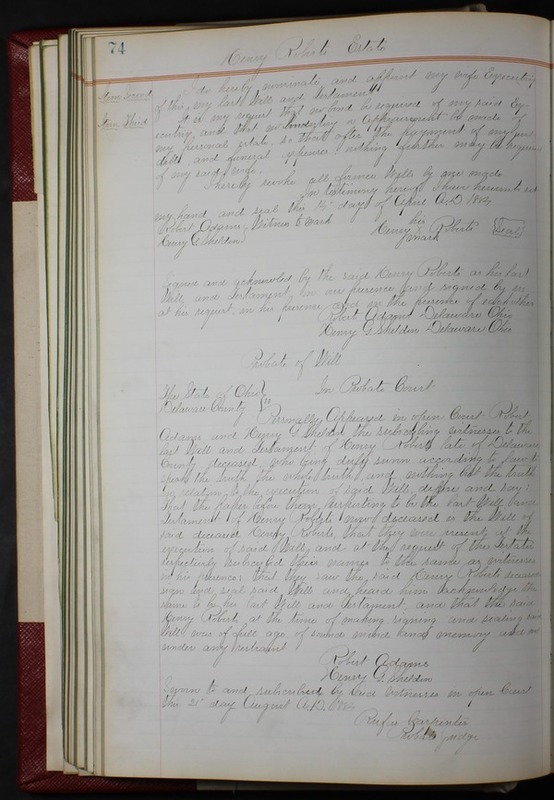 74
Henry Roberts Estate
Item Second I do hereby nominate and appoint my wife Executrix
of this my last Will and Testament
Item Third It is my request that no bond be required of my said Ex-
ecutrix, and that no inventory or appraisement be made of
my personal estate, so that after the payment of my just
debts and funeral expenses nothing further may be required
of my said wife.
I hereby revoke all former Wills by me made
In testimony hereof I have hereunto set
my hand and seal this day of April A.D. 1883
Robert Adams Witness to mark his
Henry G. Sheldon Henry X Roberts Seal
mark
Signed and acknowledged by the said Henry Roberts as his last
Will and Testament, in our presence and signed by us
at his request, in his presence and in the presence of each other
Robert Adams - Delaware Ohio
Henry G. Sheldon - Delaware Ohio
Probate of Will
The State of Ohio } In Probate Court
Delaware County } ss
Personally Appeared in open Court Robert
Adams and Henry G. Sheldon the subscribing witnesses to the
last Will and Testament of Henry Roberts late of Delaware
County deceased, who being duly sworn according to law to
speak the truth the whole truth and nothing but the truth
in relation to the execution of said Will, depose and say:
that the paper before them purporting to be the last Will and
Testament of Henry Roberts now deceased is the Will of
said deceased Henry Roberts, that they were present at the
execution of said Will, and at the request of the Testator
respectively subscribed their names to the same as witnesses
in his presence; that they saw the said Henry Roberts deceased
sign and seal said Will and heard him acknowledge the
same to be his last Will and Testament, and that the said
Henry Roberts at the time of making, signing and sealing said
Will was of full age, of sound mind and memory and not
under any restraint
Robert Adams
Henry G. Sheldon
Sworn to and subscribed by said witnesses in open Court
this 21st day August A.D. 1883
Rufus Carpenter
Probate Judge